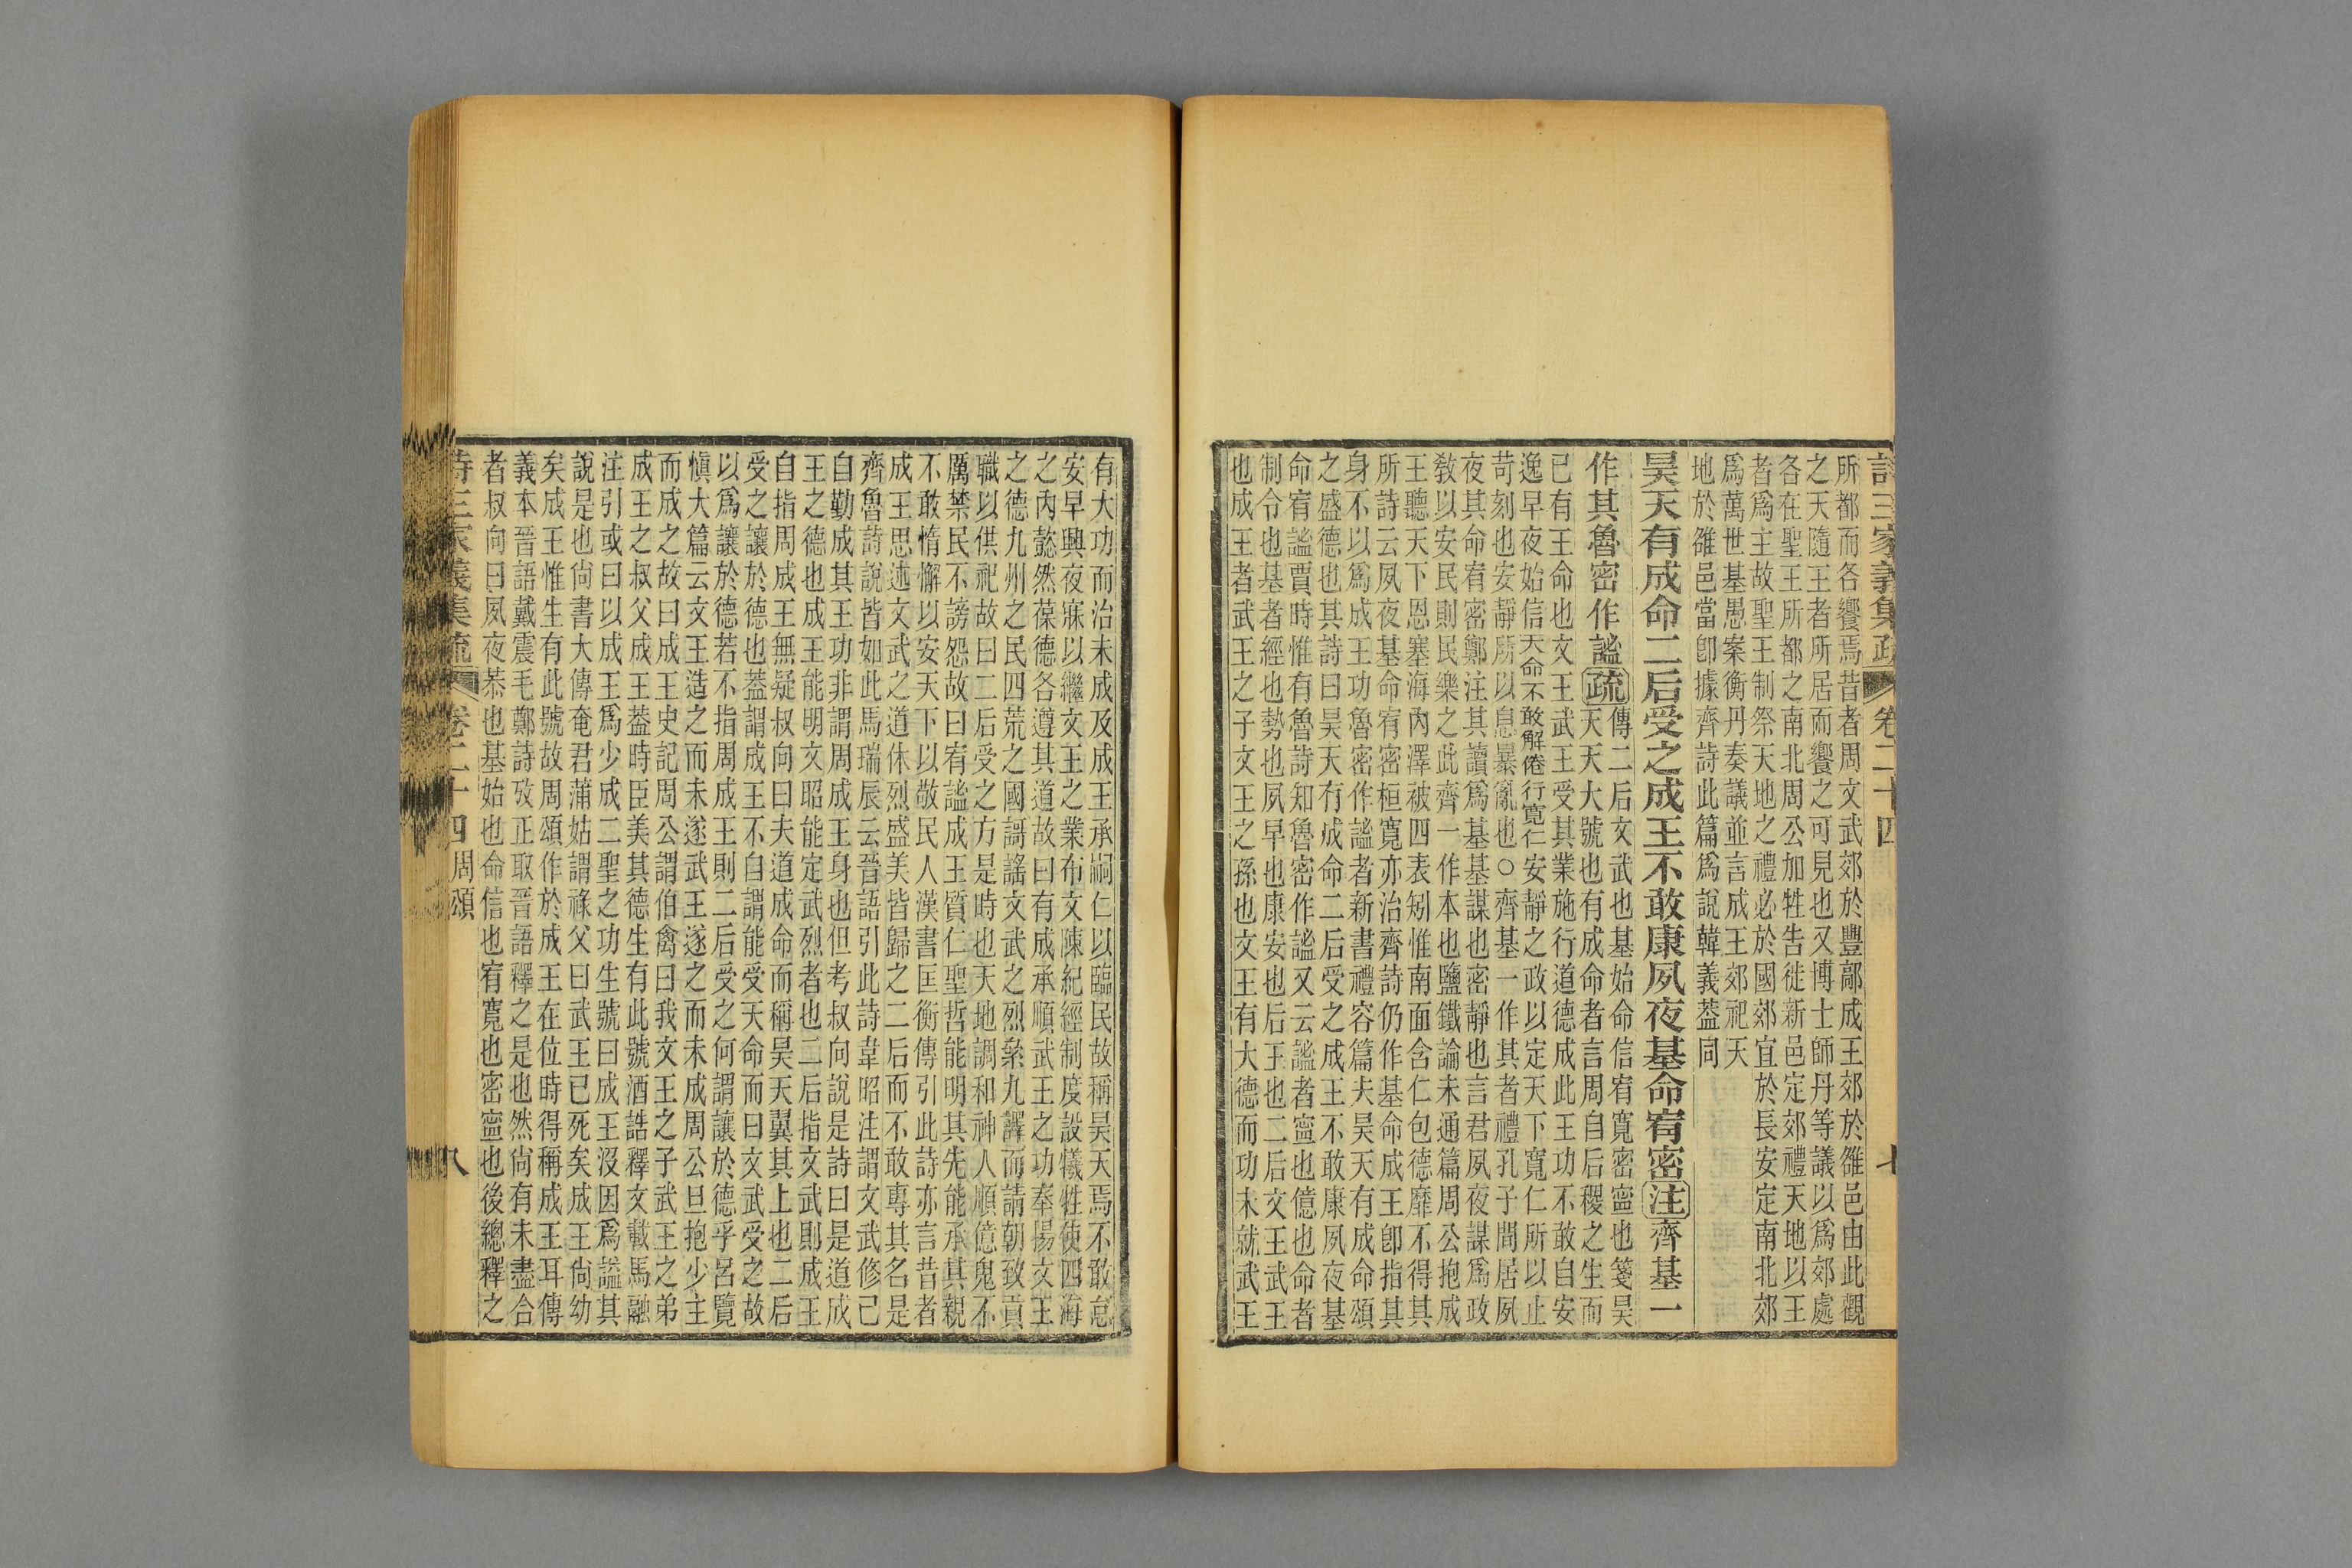 詩三家義集疏 卷二十四 七
所都而各饗焉昔者周文武郊於豐鄗成王郊於雒邑由此觀
之天隨王者所居而饗之可見也又博士師丹等議以爲郊處
各在聖王所都之南北周公加牲告徙新邑定郊禮天地以王
者爲主故聖王制祭天地之禮必於國郊宜於長安定南北郊
爲萬世基愚案衡丹奏議並言成王郊祀天
地於雒邑當卽據齊詩此篇爲說韓義蓋同
昊天有成命二后受之成王不敢康夙夜基命宥密注齊基一
作其魯密作謐疏
傳二后文武也基始命信宥寬密寍也箋昊
天天大號也有成命者言周自后稷之生而
已有王命也文王武王受其業施行道德成此王功不敢自安
逸早夜始信天命不敢解倦行寬仁安靜之政以定天下寬仁所以止
苛刻也安靜所以息暴亂也○齊基一作其者禮孔子閒居夙
夜其命宥密鄭注其讀爲基基謀也密靜也言君夙夜謀爲政
敎以安民則民樂之此齊一作本也鹽鐵論未通篇周公抱成
王聽天下恩塞海內澤被四表矧惟南面含仁包德靡不得其
所詩云夙夜基命宥密桓寬亦治齊詩仍作基命成王卽指其
身不以爲成王功魯密作謐者新書禮容篇夫昊天有成命頌
之盛德也其詩曰昊天有成命二后受之成王不敢康夙夜基
命宥謐賈時惟有魯詩知魯密作謐又云謐者寍也億也命者
制令也基者經也勢也夙早也康安也后王也二后文王武王
也成王者武王之子文王之孫也文王有大德而功未就武王
有大功而治未成及成王承嗣仁以臨民故稱昊天焉不敢怠
安早興夜寐以繼文王之業布文陳紀經制度設犧牲使四海
之內懿然葆德各遵其道故曰有成承順武王之功奉揚文王
之德九州之民四荒之國謌謠文武之烈絫九譯而請朝致貢
職以供祀故曰二后受之方是時也天地調和神人順億鬼不
厲禁民不謗怨故曰宥謐成王質仁聖哲能明其先能承其親
不敢惰懈以安天下以敬民人漢書匡衡傳引此詩亦言昔者
成王思述文武之道休烈盛美皆歸之二后而不敢專其名是
齊魯詩說皆如此馬瑞辰云晉語引此詩韋昭注謂文武修己
自勤成其王功非謂周成王身也但考叔向說是詩曰是道成
王之德也成王能明文昭能定武烈者也二后指文武則成王
自指周成王無疑叔向曰夫道成命而稱昊天翼其上也二后
受之讓於德也蓋謂成王不自謂能受天命而曰文武受之故
以爲讓於德若不指周成王則二后受之何謂讓於德乎呂覽
愼大篇云文王造之而未遂武王遂之而未成周公旦抱少主
而成之故曰成王史記周公謂伯禽曰我文王之子武王之弟
成王之叔父成王蓋時臣美其德生有此號酒誥釋文載馬融
注引或曰以成王爲少成二聖之功生號曰成王沒因爲謚其
說是也尙書大傳奄君蒲姑謂祿父曰武王已死矣成王尙幼
矣成王惟生有此號故周頌作於成王在位時得稱成王耳傳
義本晉語戴震毛鄭詩攷正取晉語釋之是也然尙有未盡合
者叔向曰夙夜恭也基始也命信也宥寬也密寍也後總釋之
詩三家義集疏 卷二十四 周頌 八